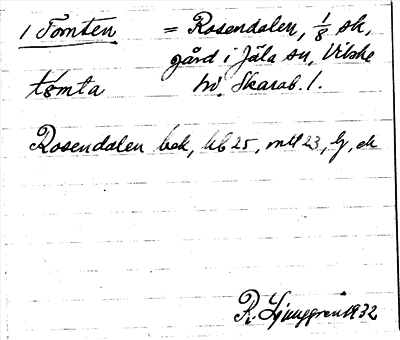 1 Tomten = Rosendalen, 1/8 sk,
gård i Jäla sn, Vilske
tømta hd, Skarab. l.
Rosendalen bek, hb 25, mtl 23, lj, ek
R. Ljunggren 1932